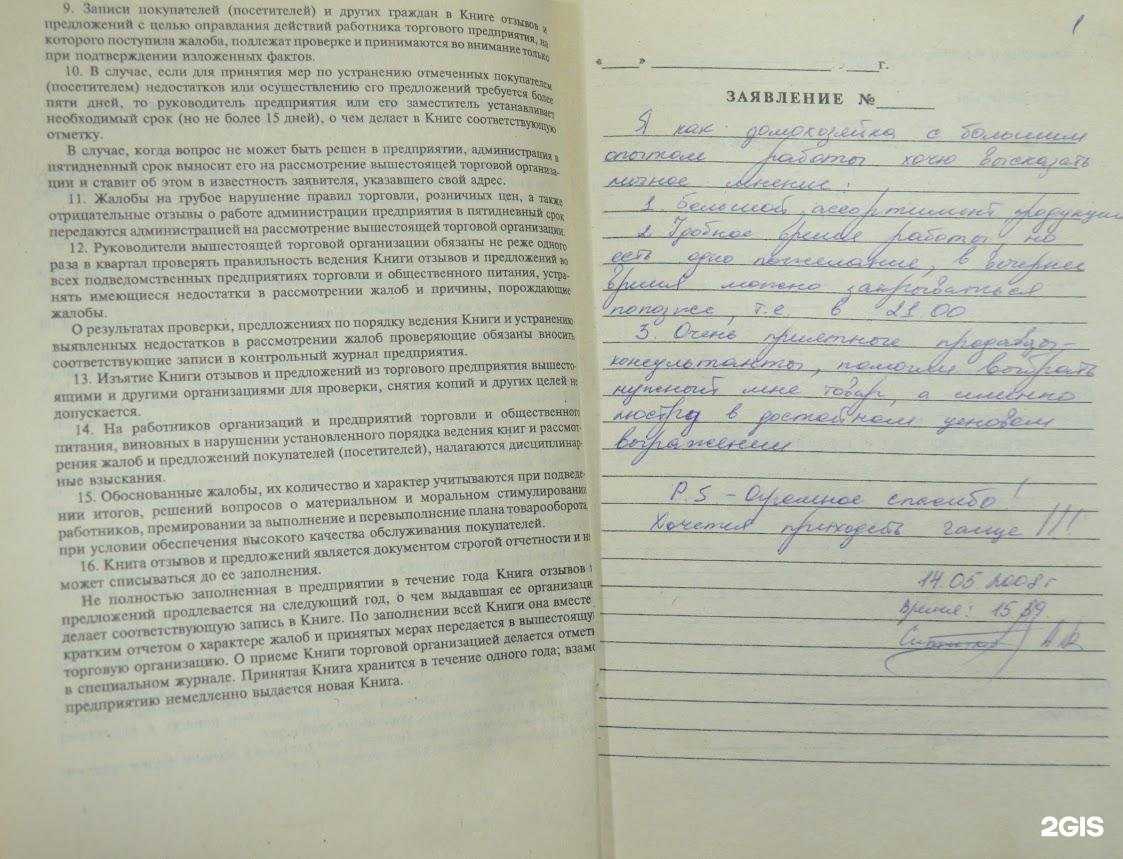 9. Записи покупателей (посетителей) и других граждан в Книге отзывов и
предложений с целью оправдания действий работника торгового предприятия, на
которого поступила жалоба, подлежат проверке и принимаются во внимание только
при подтверждении изложенных фактов.
10. В случае, если для принятия мер по устранению отмеченных покупателем
(посетителем) недостатков или осуществлению его предложений требуется более
пяти дней, то руководитель предприятия или его заместитель устанавливает
необходимый срок (но не более 15 дней), о чем делает в Книге соответствующую
отметку.
В случае, когда вопрос не может быть решен в предприятии, администрация в
пятидневный срок выносит его на рассмотрение вышестоящей торговой организа-
ции и ставит об этом в известность заявителя, указавшего свой адрес.
11. Жалобы на грубое нарушение правил торговли, розничных цен, а также
отрицательные отзывы о работе администрации предприятия в пятидневный срок
передаются администрацией на рассмотрение вышестоящей торговой организации.
12. Руководители вышестоящей торговой организации обязаны не реже одного
раза в квартал проверять правильность ведения Книги отзывов и предложений во
всех подведомственных предприятиях торговли и общественного питания, устра-
нять имеющиеся недостатки в рассмотрении жалоб и причины, порождающие
жалобы.
О результатах проверки, предложениях по порядку ведения Книги и устранению
выявленных недостатков в рассмотрении жалоб проверяющие обязаны вносить
соответствующие записи в контрольный журнал предприятия.
13. Изъятие Книги отзывов и предложений из торгового предприятия вышесто-
ящими и другими организациями для проверки, снятия копий и других целей не
допускается.
14. На работников организаций и предприятий торговли и общественного
питания, виновных в нарушении установленного порядка ведения книг и рассмот-
рения жалоб и предложений покупателей (посетителей), налагаются дисциплинар-
ные взыскания.
15. Обоснованные жалобы, их количество и характер учитываются при подведе-
нии итогов, решений вопросов о материальном и моральном стимулировании
работников, премировании за выполнение и перевыполнение плана товарооборота
при условии обеспечения высокого качества обслуживания покупателей.
16. Книга отзывов и предложений является документом строгой отчетности и не
может списываться до ее заполнения.
Не полностью заполненная в предприятии в течение года Книга отзывов и
предложений продлевается на следующий год, о чем выдавшая ее организаци
делает соответствующую запись в Книге. По заполнении всей Книги она вместе
кратким отчетом о характере жалоб и принятых мерах передается в вышестоящую
торговую организацию. О приеме Книги торговой организацией делается отметк
в специальном журнале. Принятая Книга хранится в течение одного года; взаме
предприятию немедленно выдается новая Книга.
1
«____» ____________ . ____г.
ЗАЯВЛЕНИЕ №______
Я как домохозяйка с большим
опытом работы хочу высказать
личное мнение:
1. Большой ассортимент продукции
2. Удобное время работы, но
есть одно пожелание, в вечернее
время можно закрываться
попозже, т.е. в 21.00
3. Очень приятные продавцы-
консультанты, помогли выбрать
нужный мне товар, а именно
люстру в достойном ценовом
выражении
P.S - Огромное спасибо!
Хочется приходить чаще!!!
14.05 2008 г
Время: 15
2GIS